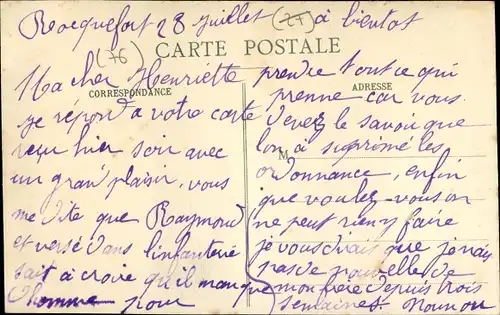 Rocquefort 28 Juillet (27) à bientot
(76)
CARTE POSTALE
CORRESPONDANCE
ADRESSE
M
Ma cher Henriette
je répond a votre carte
reçu hier soir avec
un gran plaisir, vous
me dite que Raymond
et versé dans l'infanterie
sait à croire qu'il manque
d'homme pour
prendre tout ce qui
prenne car vous
devez le savoir que
lon à suprimé les
ordonnance, enfin
que voulez-vous on
ne peut rien y faire
je vous dirais que je n'ais
pas de nouvelle de
mon frère depuis trois
semaines. Nounou